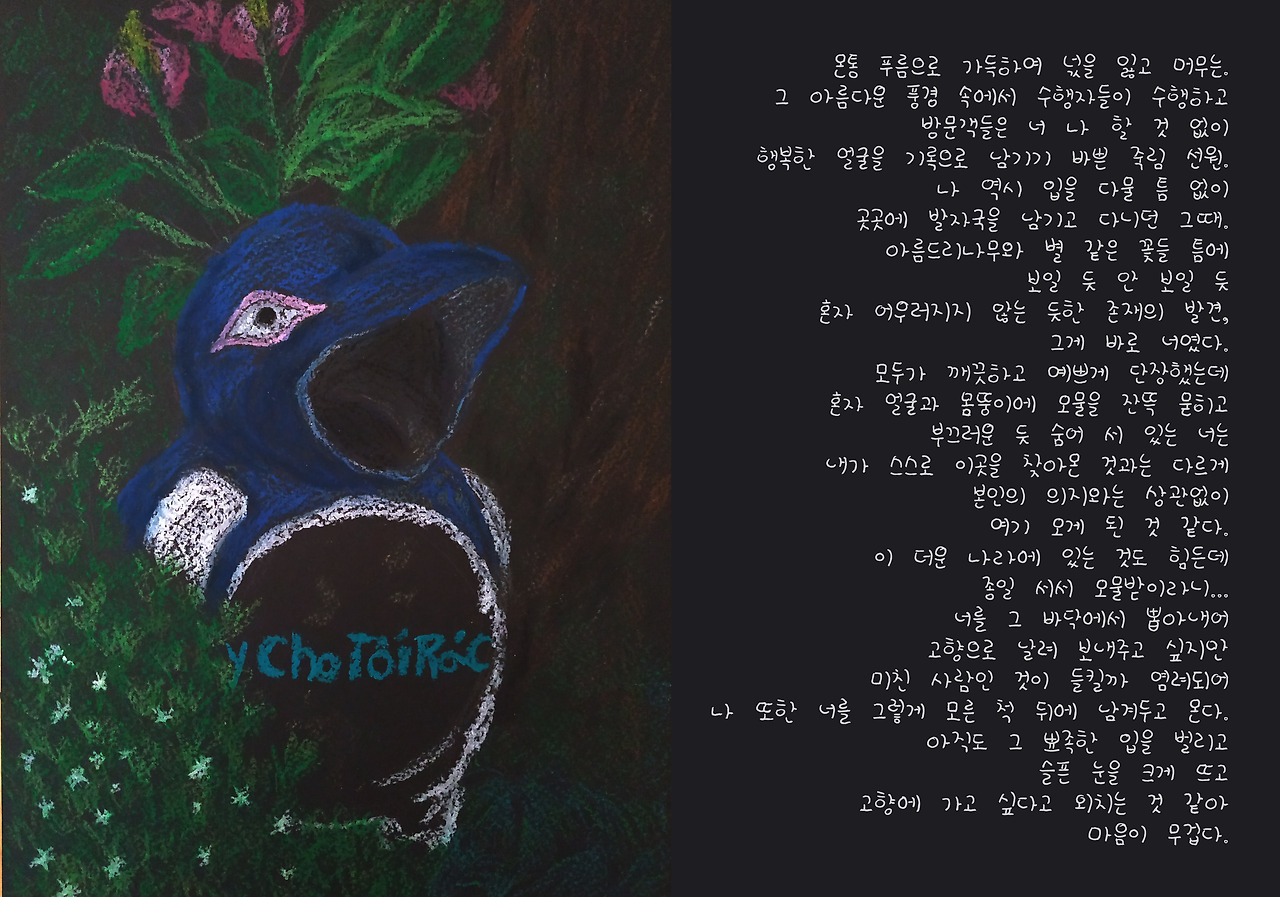 y Cho Tôi Rác
온통 푸름으로 가득하여 넋을 잃고 머무는.
그 아름다운 풍경 속에서 수행자들이 수행하고
방문객들은 너 나 할 것 없이
행복한 얼굴을 기록으로 남기기 바쁜 죽림 선원.
나 역시 입을 다물 틈 없이
곳곳에 발자국을 남기고 다니던 그때.
아름드리나무와 별 같은 꽃들 틈에
보일 듯 안 보일 듯
혼자 어우러지지 않는 듯한 존재의 발견,
그게 바로 너였다.
모두가 깨끗하고 예쁘게 단장했는데
혼자 얼굴과 몸뚱이에 오물을 잔뜩 묻히고
부끄러운 듯 숨어 서 있는 너는
내가 스스로 이곳을 찾아온 것과는 다르게
본인의 의지와는 상관없이
여기 오게 된 것 같다.
이 더운 나라에 있는 것도 힘든데
종일 서서 오물받이라니...
너를 그 바닥에서 뽑아내어
고향으로 날려 보내주고 싶지만
미친 사람인 것이 들킬까 염려되어
나 또한 너를 그렇게 모른 척 뒤에 남겨두고 온다.
아직도 그 뾰족한 입을 벌리고
슬픈 눈을 크게 뜨고
고향에 가고 싶다고 외치는 것 같아
마음이 무겁다.